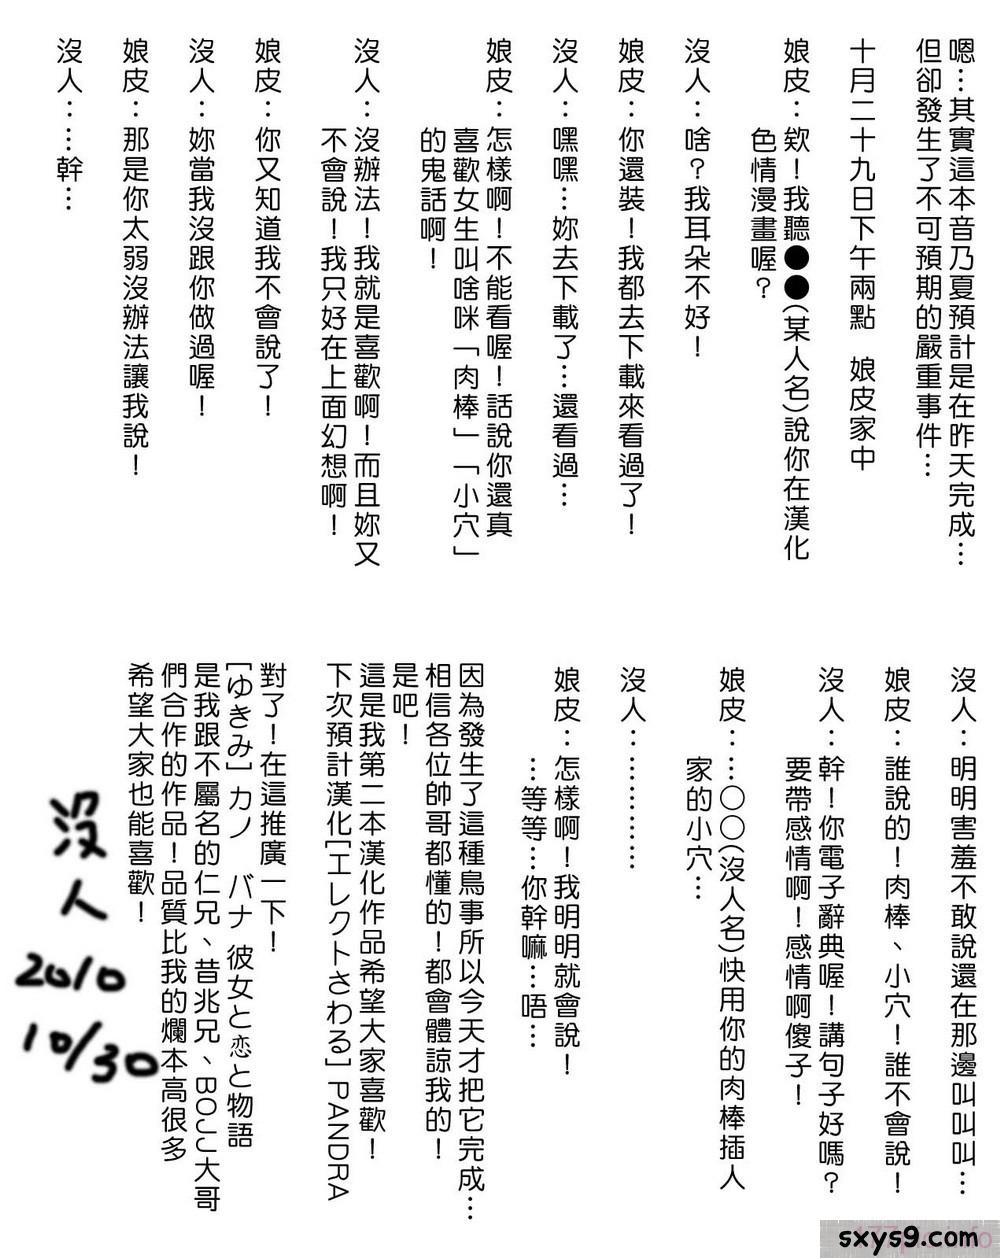 嗯…其實這本音乃夏預計是在昨天完成…
但卻發生了不可預期的嚴重事件…
十月二十九日下午兩點　娘皮家中
娘皮：欸！我聽●●(某人名)說你在漢化
色情漫畫喔？
沒人：啥？我耳朵不好！
娘皮：你還裝！我都去下載來看過了！
沒人：嘿嘿…妳去下載了…還看過…
娘皮：怎樣啊！不能看喔！話說你還真
喜歡女生叫啥咪「肉棒」「小穴」
的鬼話啊！
沒人：沒辦法！我就是喜歡啊！而且妳又
不會說！我只好在上面幻想啊！
娘皮：你又知道我不會說了！
沒人：妳當我沒跟你做過喔！
娘皮：那是你太弱沒辦法讓我說！
沒人：…幹…
沒人：明明害羞不敢說還在那邊叫叫叫…
娘皮：誰說的！肉棒、小穴！誰不會說！
沒人：幹！你電子辭典喔！講句子好嗎？
要帶感情啊！感情啊傻子！
娘皮：…○○(沒人名)快用你的肉棒插人
家的小穴…
沒人：…………
娘皮：怎樣啊！我明明就會說！
…等等…你幹嘛…唔…
因為發生了這種鳥事所以今天才把它完成…
相信各位帥哥都懂的！都會體諒我的！
是吧！
這是我第二本漢化作品希望大家喜歡！
下次預計漢化[エレクトさわる] PANDRA
對了！在這推廣一下！
[ゆきみ] カノ　バナ 彼女と恋と物語
是我跟不屬名的仁兄、昔兆兄、BOJJ大哥
們合作的作品！品質比我的爛本高很多
希望大家也能喜歡！
沒人
2010
10/30
sxys9.com